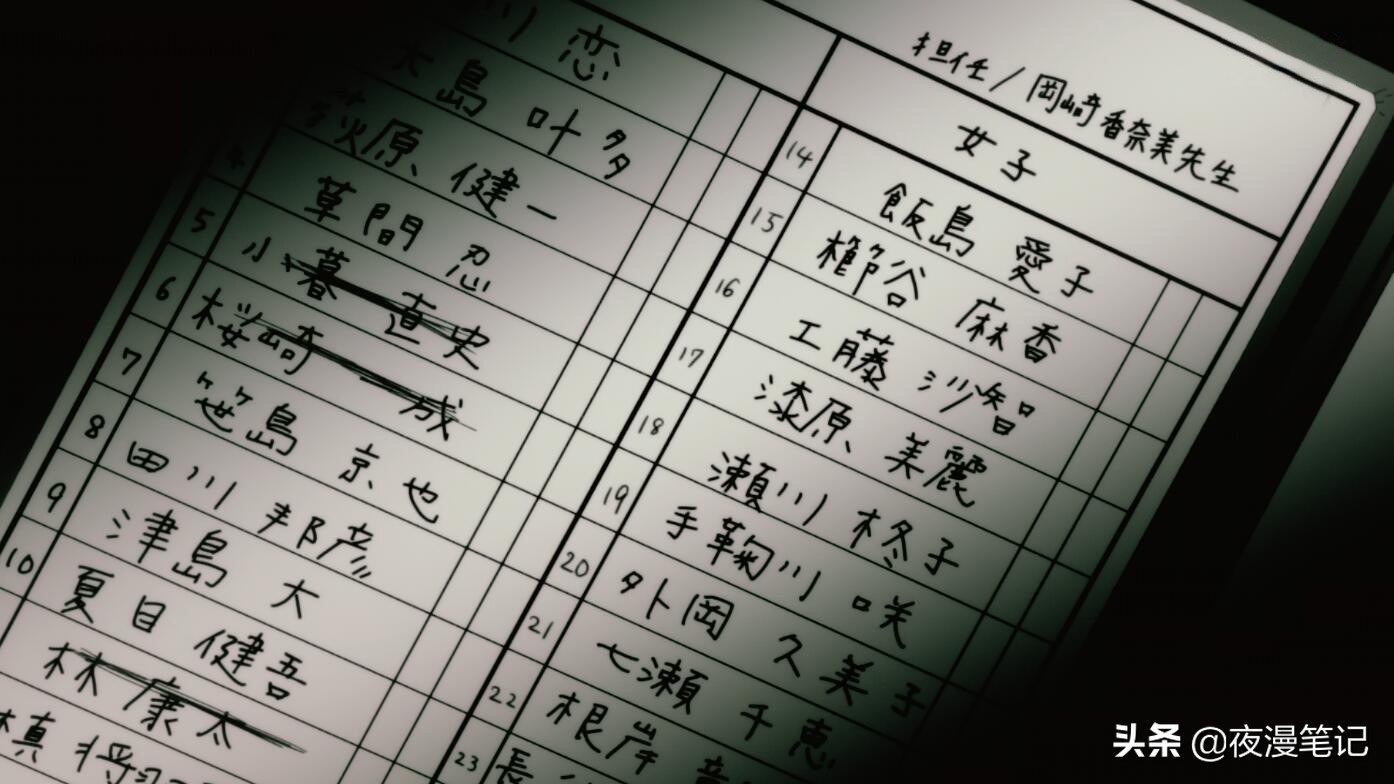 担任/岡崎香奈美先生
川 恋
大島 叶多
荻原 健一
4 草間 忍
5 小暮 直史
6 桜崎 一成
7 笹島 京也
8 田川 邦彦
9 津島 大
10 夏目 健吾
林 康太
槙 将
女子
14 飯島 愛子
15 櫛谷 麻香
16 工藤 沙智
17 漆原 美麗
18 瀬川 柊子
19 手鞠川 咲
20 外岡 久美子
21 七瀬 千恵
22 根岸
23 長
头条 @夜漫笔记